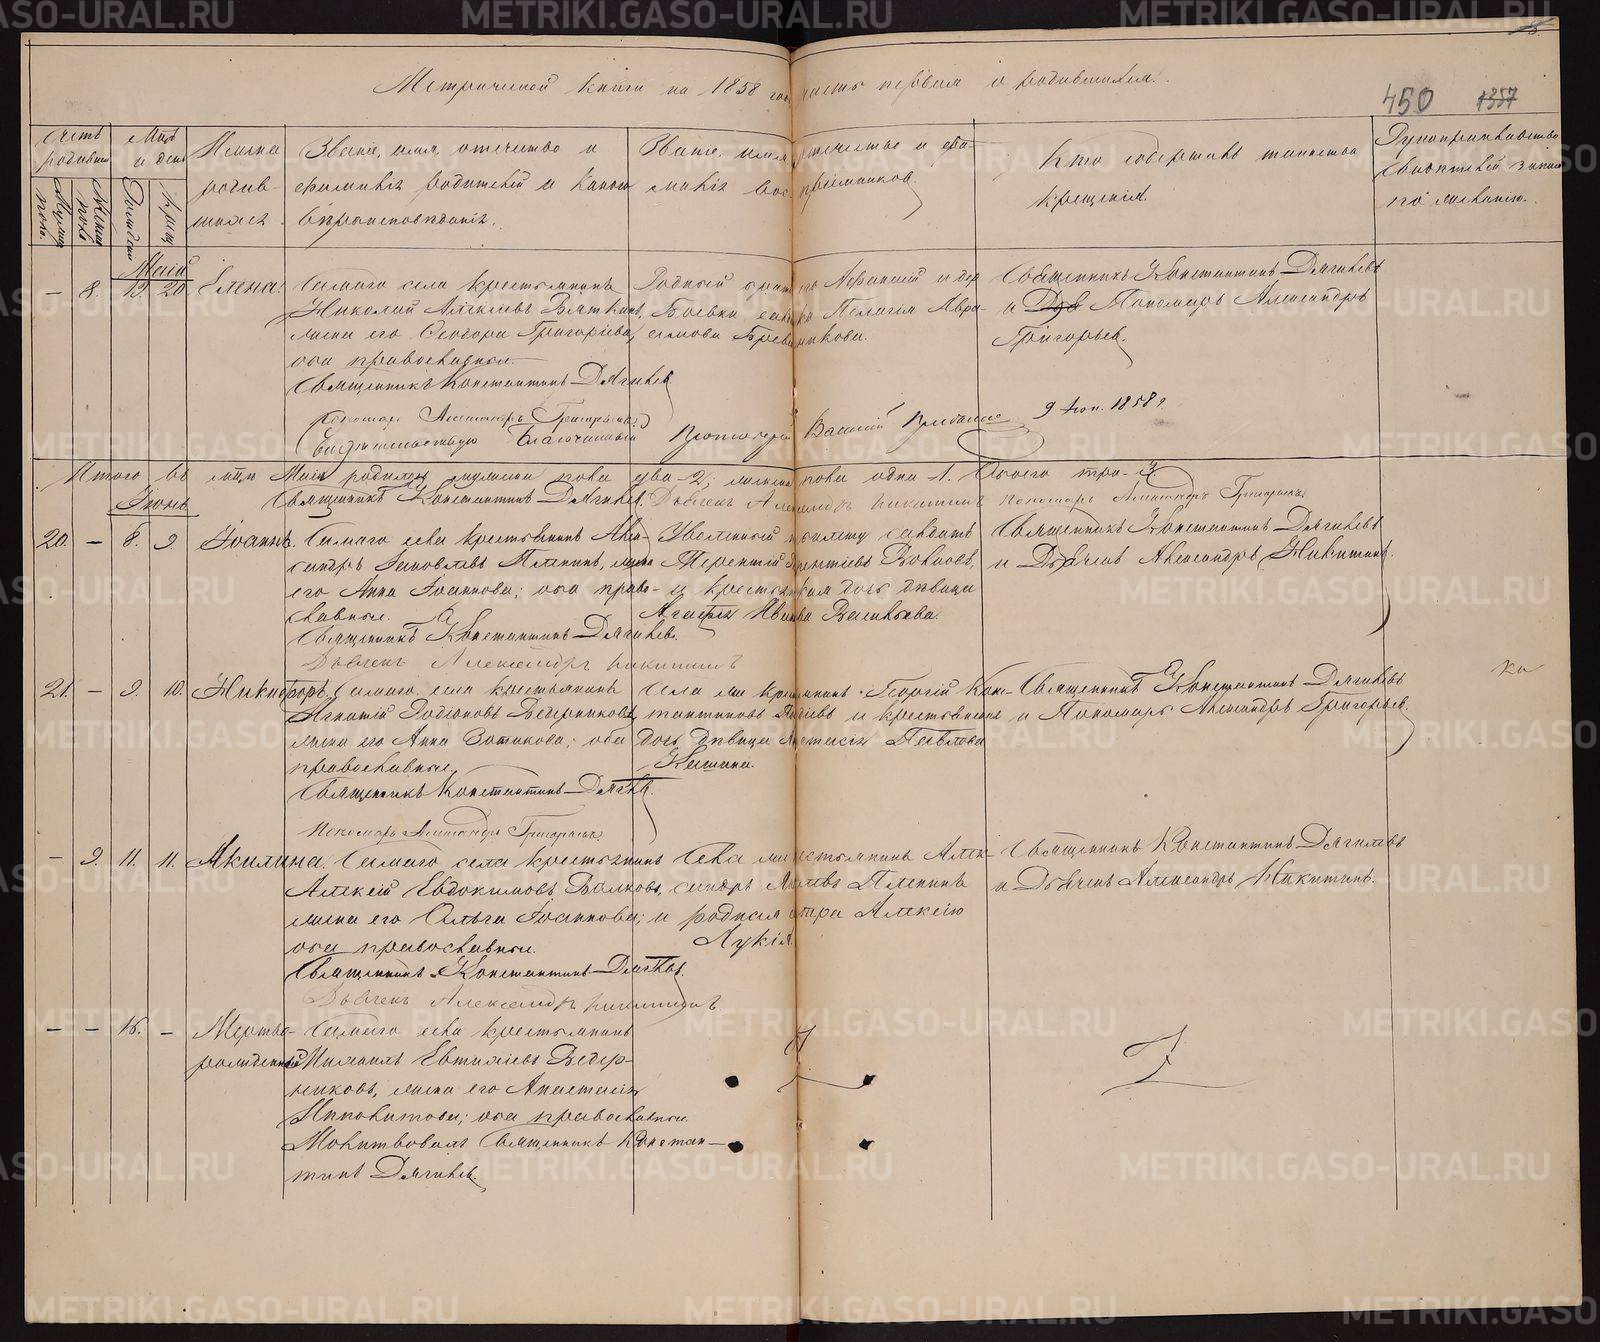 Метрической книги на 1858 годъ часть первая о родившихся.
450
1357
Счетъ родившихся
Мужеска пола.
Женска пола
Мѣсяцъ и день
Рожденія
Крещ.
Имена родившихся.
Званіе, имя, отечество и фамилія родителей и какого вѣроисповѣданія.
Званіе, имя, отечество и фамилія воспріемниковъ.
Кто совершалъ таинство крещенія.
Рукоприкладство свидѣтелей записи по желанію.
Маій
– 8. 19. 20. Елена.
Самаго села крестьянинъ
Николай Алексіевъ Вяткинъ,
жена его Ѳеодора Григоріева,
оба православные.
Священникъ Константинъ Дягилевъ
Пономарь Александръ Григорьевъ
Свидѣтельствую Благочинный Протоіерей Василій 9 Іюн. 1858 г
Родный братъ его Афанасій и дер.
Боевки Пелагія Авра-
амова
Священникъ Константинъ Дягилевъ
и Пономарь Александръ
Григорьевъ.
Итого въ маѣ Маіѣ родилось мужеска пола два – 2, женска пола одна – 1. Всего три – 3
Священникъ Константинъ Дягилевъ. Дьячекъ Александръ Никитинъ Пономарь Александръ Григорьевъ.
Іюнь
20. – 8. 9. Іоаннъ.
Самаго села крестьянинъ Алек-
сандръ Іаковлевъ Пленинъ, жена
его Анна Іоаннова; оба право-
славные.
Священникъ Константинъ Дягилевъ.
Дьячекъ Александръ Никитинъ
Уволенный солдатъ
Терентій Волковъ,
и крестьянская дочь дѣвица
Агафія Иванова Васильева.
Священникъ Константинъ Дягилевъ
и Дьячекъ Александръ Никитинъ.
21. – 9. 10. Никифоръ.
Самаго села крестьянинъ
Игнатій Родіоновъ Ведерниковъ,
жена его Анна Зотикова; оба
православные.
Священникъ Константинъ Дягил.
Пономарь Александръ Григорьевъ.
Села сего крестьянинъ Георгій Кон-
стантиновъ и крестьянская
дочь дѣвица Анастасія Павлова
Священникъ Константинъ Дягилевъ
и Пономарь Александръ Григорьевъ.
– 9. 11. 11. Акилина.
Самаго села крестьянинъ
Алексій Евдокимовъ Волковъ,
жена его Ольга Іоаннова;
оба православные.
Священникъ Константинъ Дягилевъ.
Дьячекъ Александръ Никитинъ.
Села сего крестьянинъ Алек-
сандръ Пленинъ
и родная сестра Алексію
Лукія
Священникъ Константинъ Дягилевъ
и Дьячекъ Александръ Никитинъ.
– – 16. – Мертво-
рожденный
Самаго села крестьянинъ
Михаилъ Евтихіевъ Ведер-
никовъ, жена его Анастасія
Ипполитова; оба православные.
Молитвовалъ Священникъ Констан-
тинъ Дягилевъ.
METRIKI.GASO-URAL.RU